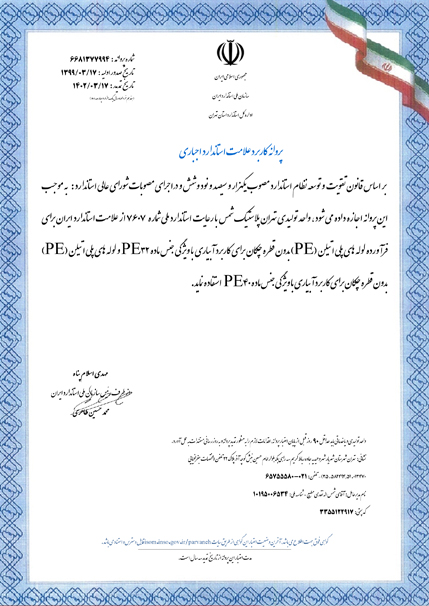 جمهوری اسلامی ایران
سازمان ملی استاندارد ایران
اداره کل استاندارد استان تهران
شماره پروانه: ۶۶۸۱۳۷۷۹۹۴
تاریخ صدور اولیه: ۱۳۹۹/۰۳/۱۷
تاریخ تمدید: ۱۴۰۲/۰۳/۱۷
پروانه کاربرد علامت استاندارد اجباری
بر اساس قانون تقویت و توسعه نظام استاندارد مصوب یکهزار و سیصد و نود و شش و در اجرای مصوبات شورای عالی استاندارد: به موجب
این پروانه اجازه داده می شود. واحد تولیدی تهران پلاستیک شمس با رعایت استاندارد ملی شماره ۷۶۰۷ از علامت استاندارد ایران برای
فرآورده لوله های پلی اتیلن (PE) بدون قطره چکان برای کاربرد آبیاری با ویژگی جنس ماده PE۳۲ و لوله های پلی اتیلن (PE)
بدون قطره چکان برای کاربرد آبیاری با ویژگی جنس ماده PE۴۰ استفاده نماید.
مهدی اسلام پناه
از طرف رئیس سازمان ملی استاندارد ایران
محمد حسین
تلفن: ۰۲۱-۶۵۷۵۵۵۸۰
۱۰۱۹۵۰۰۶۵۳۴
۳۳۵۵۱۲۲۹۱۷
مدت اعتبار این پروانه از تاریخ تمدید سه سال است.